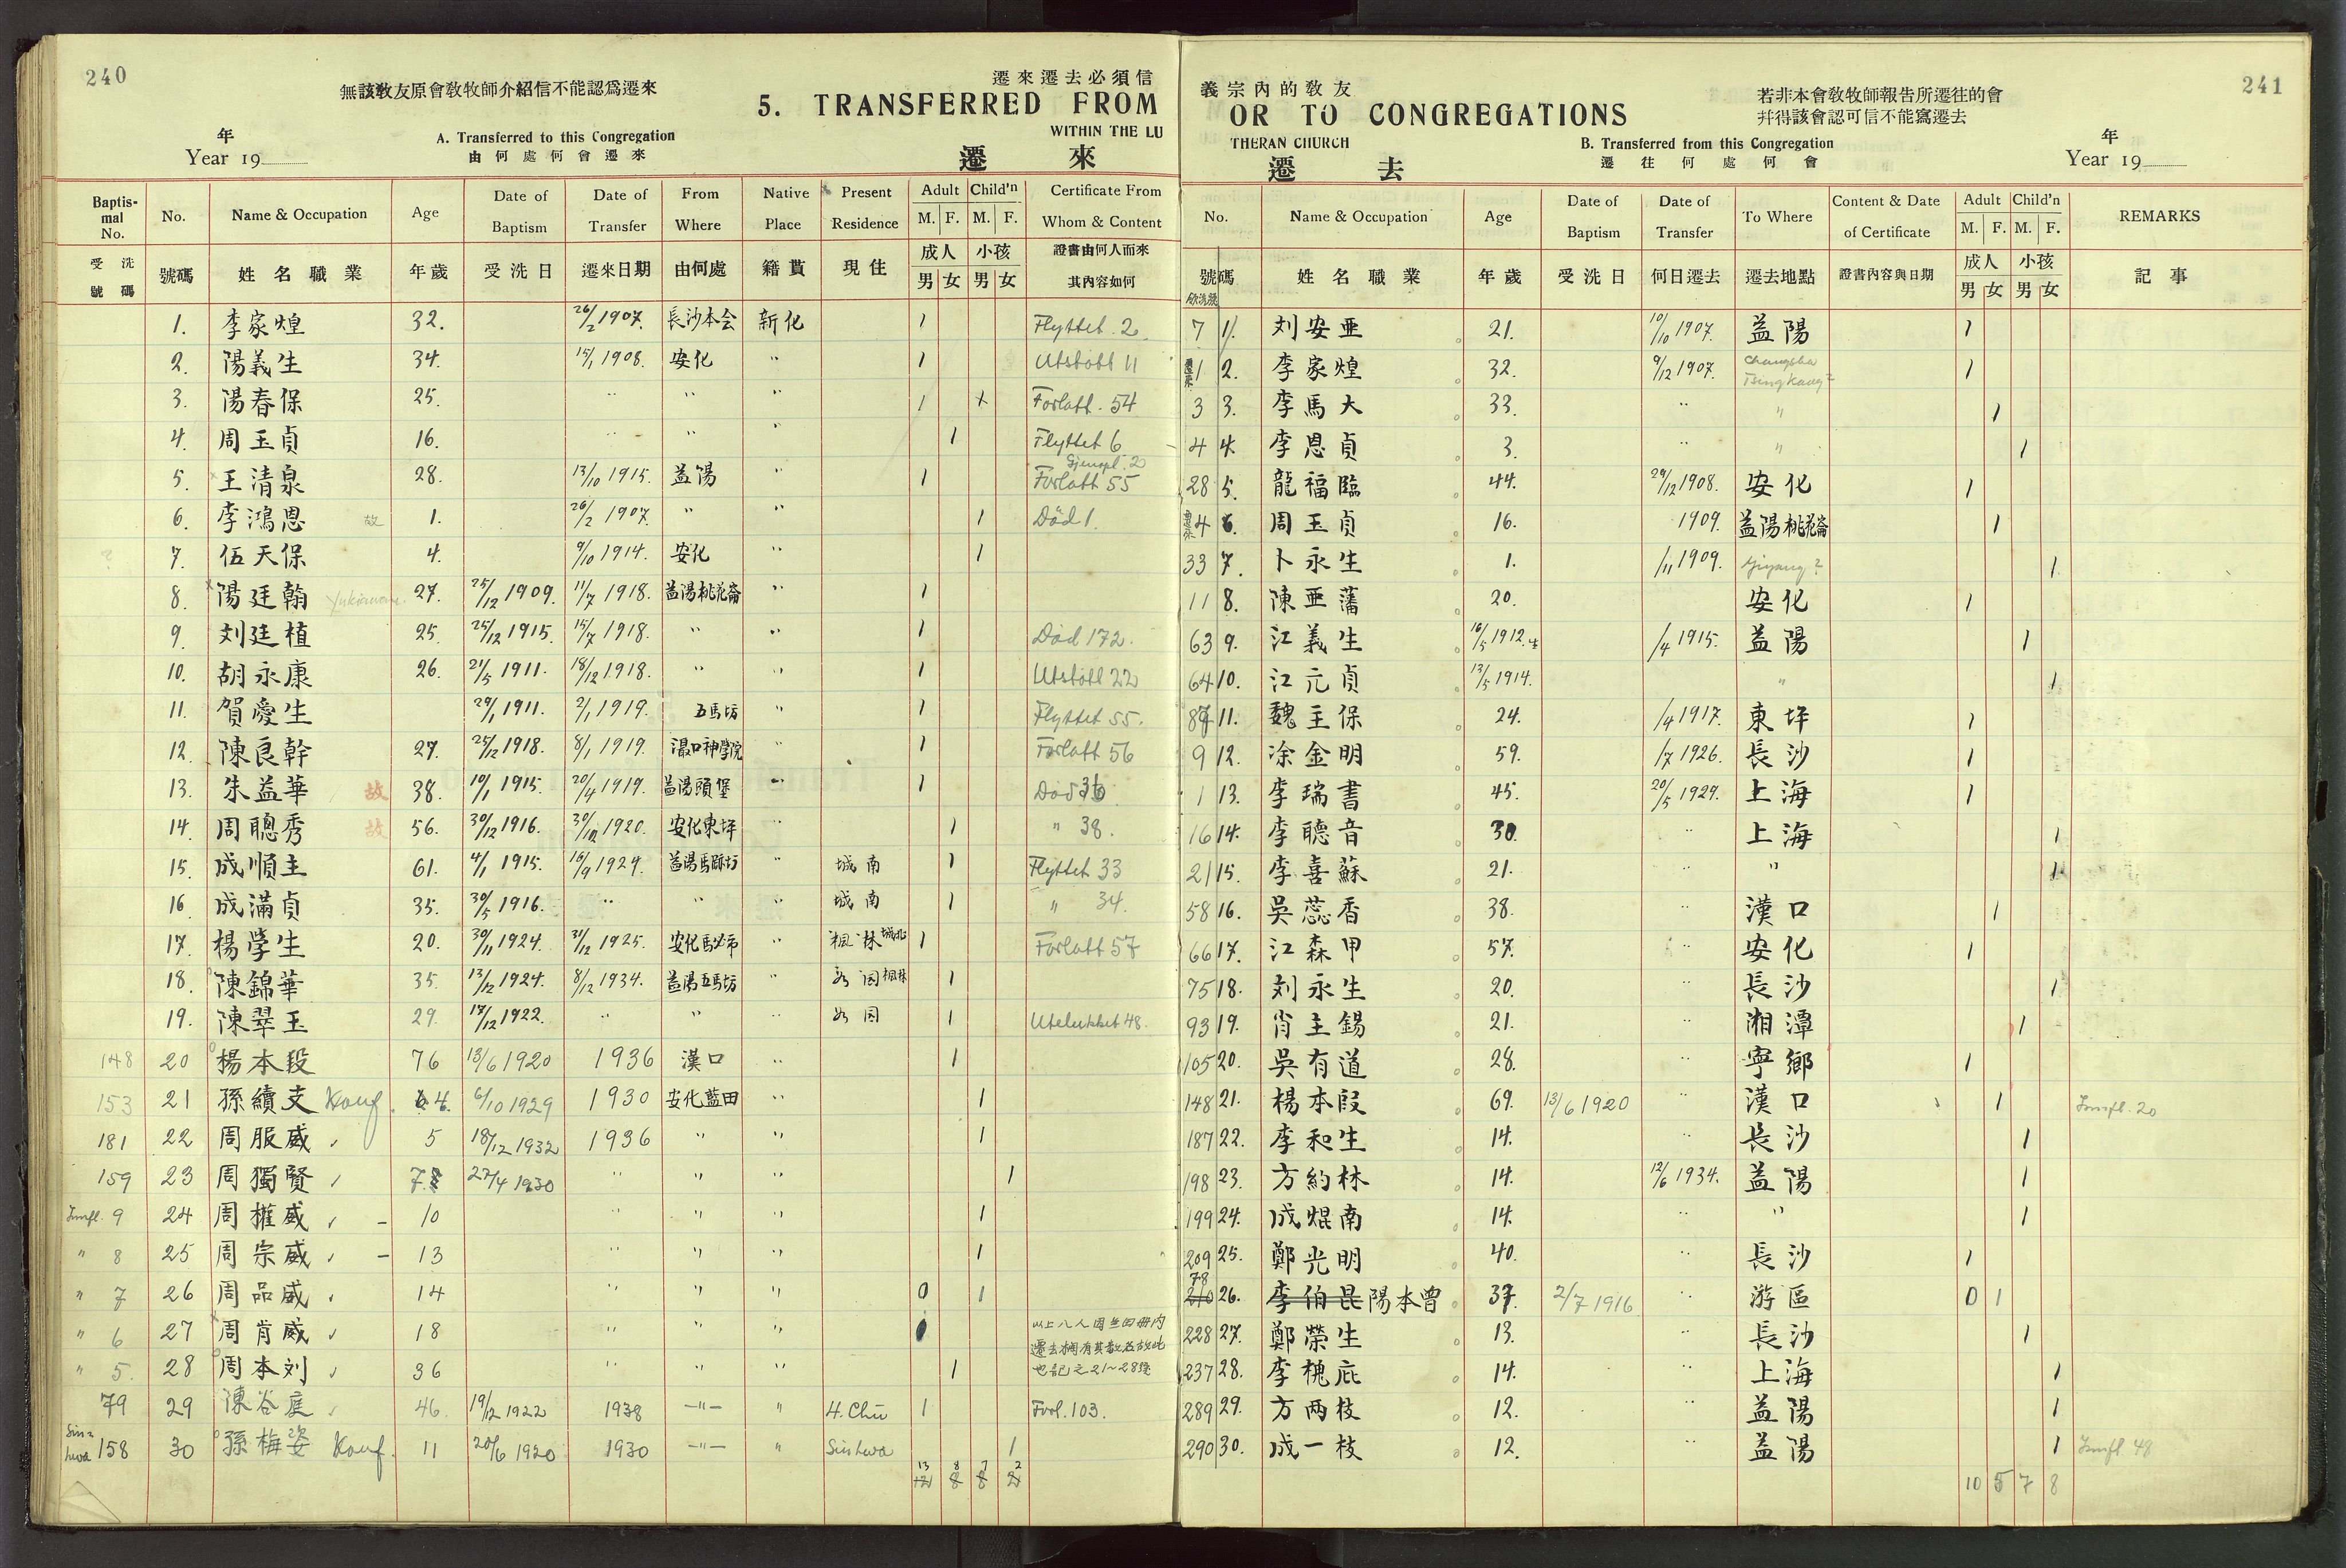 240
無該敎友原會敎牧師介紹信不能認爲遷來
遷來遷去必須信
5. TRANSFERRED FROM
WITHIN THE LU
年
Year 19
A. Transferred to this Congregation
由何處何會遷來
遷 來
Baptismal No. No. Name & Occupation Age Date of Baptism Date of Transfer From Where Native Place Present Residence Adult M. F. Child'n M. F. Certificate From Whom & Content
受洗號碼 號碼 姓名職業 年歲 受洗日 遷來日期 由何處 籍貫 現住 成人 男 女 小孩 男 女 證書由何人而來 其內容如何
1. 李家煌 32. 26/2 1907. 長沙本会 新化 1 Flyttet. 2
2. 陽義生 34. 15/1 1908. 安化 " 1 Utstött 11
3. 陽春保 25. " " " 1 Forlatt. 54
4. 周玉貞 16. " " " 1 Flyttet 6
5. 王清泉 28. 13/10 1915. 益陽 " 1 Forlatt 55
6. 李鴻恩 故 1. 26/2 1907. " " 1 Död 1.
7. 伍天保 4. 9/10 1914. 安化 " 1
8. 陽廷翰 27. 25/12 1909. 11/7 1918. 益陽桃花崙 " 1
9. 刘廷植 25. 25/12 1915. 15/7 1918. " " 1 Död 172.
10. 胡永康 26. 21/5 1911. 18/12 1918. " " 1 Utstött 22
11. 賀愛生 29/1 1911. 2/1 1919. 五馬坊 " 1 Flyttet 55.
12. 陳良幹 27. 25/12 1918. 8/1 1919. 滠口神學院 " 1 Forlatt 56
13. 朱益華 故 38. 10/1 1915. 20/4 1919. 益陽頭堡 " 1 Död 36
14. 周聰秀 故 56. 30/12 1916. 1920. 安化東坪 " 1 " 38.
15. 成順主 61. 4/1 1915. 16/9 1924. 益陽馬跡坊 " 城南 1 Flyttet 33
16. 成滿貞 35. 30/5 1916. " " " 城南 1 " 34.
17. 楊學生 20. 30/11 1924. 31/12 1925. 安化 " 楓林 1 Forlatt 57
18. 陳錦華 35. 13/12 1924. 8/12 1934. 益陽五馬坊 " 1
19. 陳翠玉 29. 17/12 1922. " " " 1 Utelukket 48.
148 20 楊本段 76 13/6 1920 1936 漢口 " 1
153 21 孫續支 Konf. 4. 6/10 1929 1930 安化藍田 " 1
181 22 周服威 5 18/12 1932 1936 " " 1
159 23 周獨賢 7. 27/4 1930 " " " 1
Innfl. 9 24 周權威 10 " " " 1
" 8 25 周宗威 13 " " " 1
" 7 26 周品威 14 " " " 0 1
" 6 27 周肖威 18 " " "
" 5. 28 周本刘 36 " " " 1
79 29 陳谷庭 46 19/12 1922 1938 -"- " H. Chü 1 Forl. 103.
Sinhwa 158 30 孫梅姿 Konf. 11 20/6 1920 1930 -"- " Sinhwa 1
13 8 7 2
12 8 8 2
241
義宗內的敎友
OR TO CONGREGATIONS
THERAN CHURCH
若非本會敎牧師報告所遷往的會
幷得該會認可信不能寫遷去
B. Transferred from this Congregation
遷往何處何會
遷 去
年
Year 19
No. Name & Occupation Age Date of Baptism Date of Transfer To Where Content & Date of Certificate Adult M. F. Child'n M. F. REMARKS
號碼 姓名職業 年歲 受洗日 何日遷去 遷去地點 證書內容與日期 成人 男 女 小孩 男 女 記事
7 1. 刘安亜 21. 10/10 1907. 益陽 1
遷來 1 2. 李家煌 32. 9/12 1907. Changsha Tsingkang? 1
3 3. 李馬大 33. " " 1
4 4. 李恩貞 3. " " 1
28 5. 龍福臨 44. 29/12 1908. 安化 1
遷來 4 6. 周玉貞 16. 1909. 益陽桃花崙 1
33 7. 卜永生 1. /11 1909. Yiyang? 1
11 8. 陳亜藩 20. 安化 1
63 9. 江義生 16/5 1912.生 /4 1915. 益陽 1
64 10. 江元貞 13/5 1914. " 1
87 11. 魏主保 24. /4 1917. 東坪 1
9 12. 凃金明 59. /7 1926. 長沙 1
1 13. 李瑞書 45. 20/5 1929. 上海 1
16 14. 李聽音 30. " 上海 1
21 15. 李喜蘇 21. " " 1
58 16. 吳蕊香 38. " 漢口 1
66 17. 江森甲 57. " 安化 1
75 18. 刘永生 20. " 長沙 1
93 19. 肖主錫 21. " 湘潭 1
105 20. 吳有道 28. " 寧鄉 1
148 21. 楊本段 69. 13/6 1920 " 漢口 1 Innfl. 20
187 22. 李和生 14. " 長沙 1
198 23. 方約林 14. 12/6 1934. 益陽 1
199 24. 成焜南 14. " " 1
209 25. 鄭光明 40. " 長沙 1
78 210 26. 李伯昆 陽本曾 37. 2/7 1916 " 游區 0 1
228 27. 鄭榮生 13. " 長沙 1
237 28. 李槐庇 14. " 上海 1
289 29. 方两枝 12. " 益陽 1
290 30. 成一枝 12. " 益陽 1 Innfl. 48
10 5 7 8